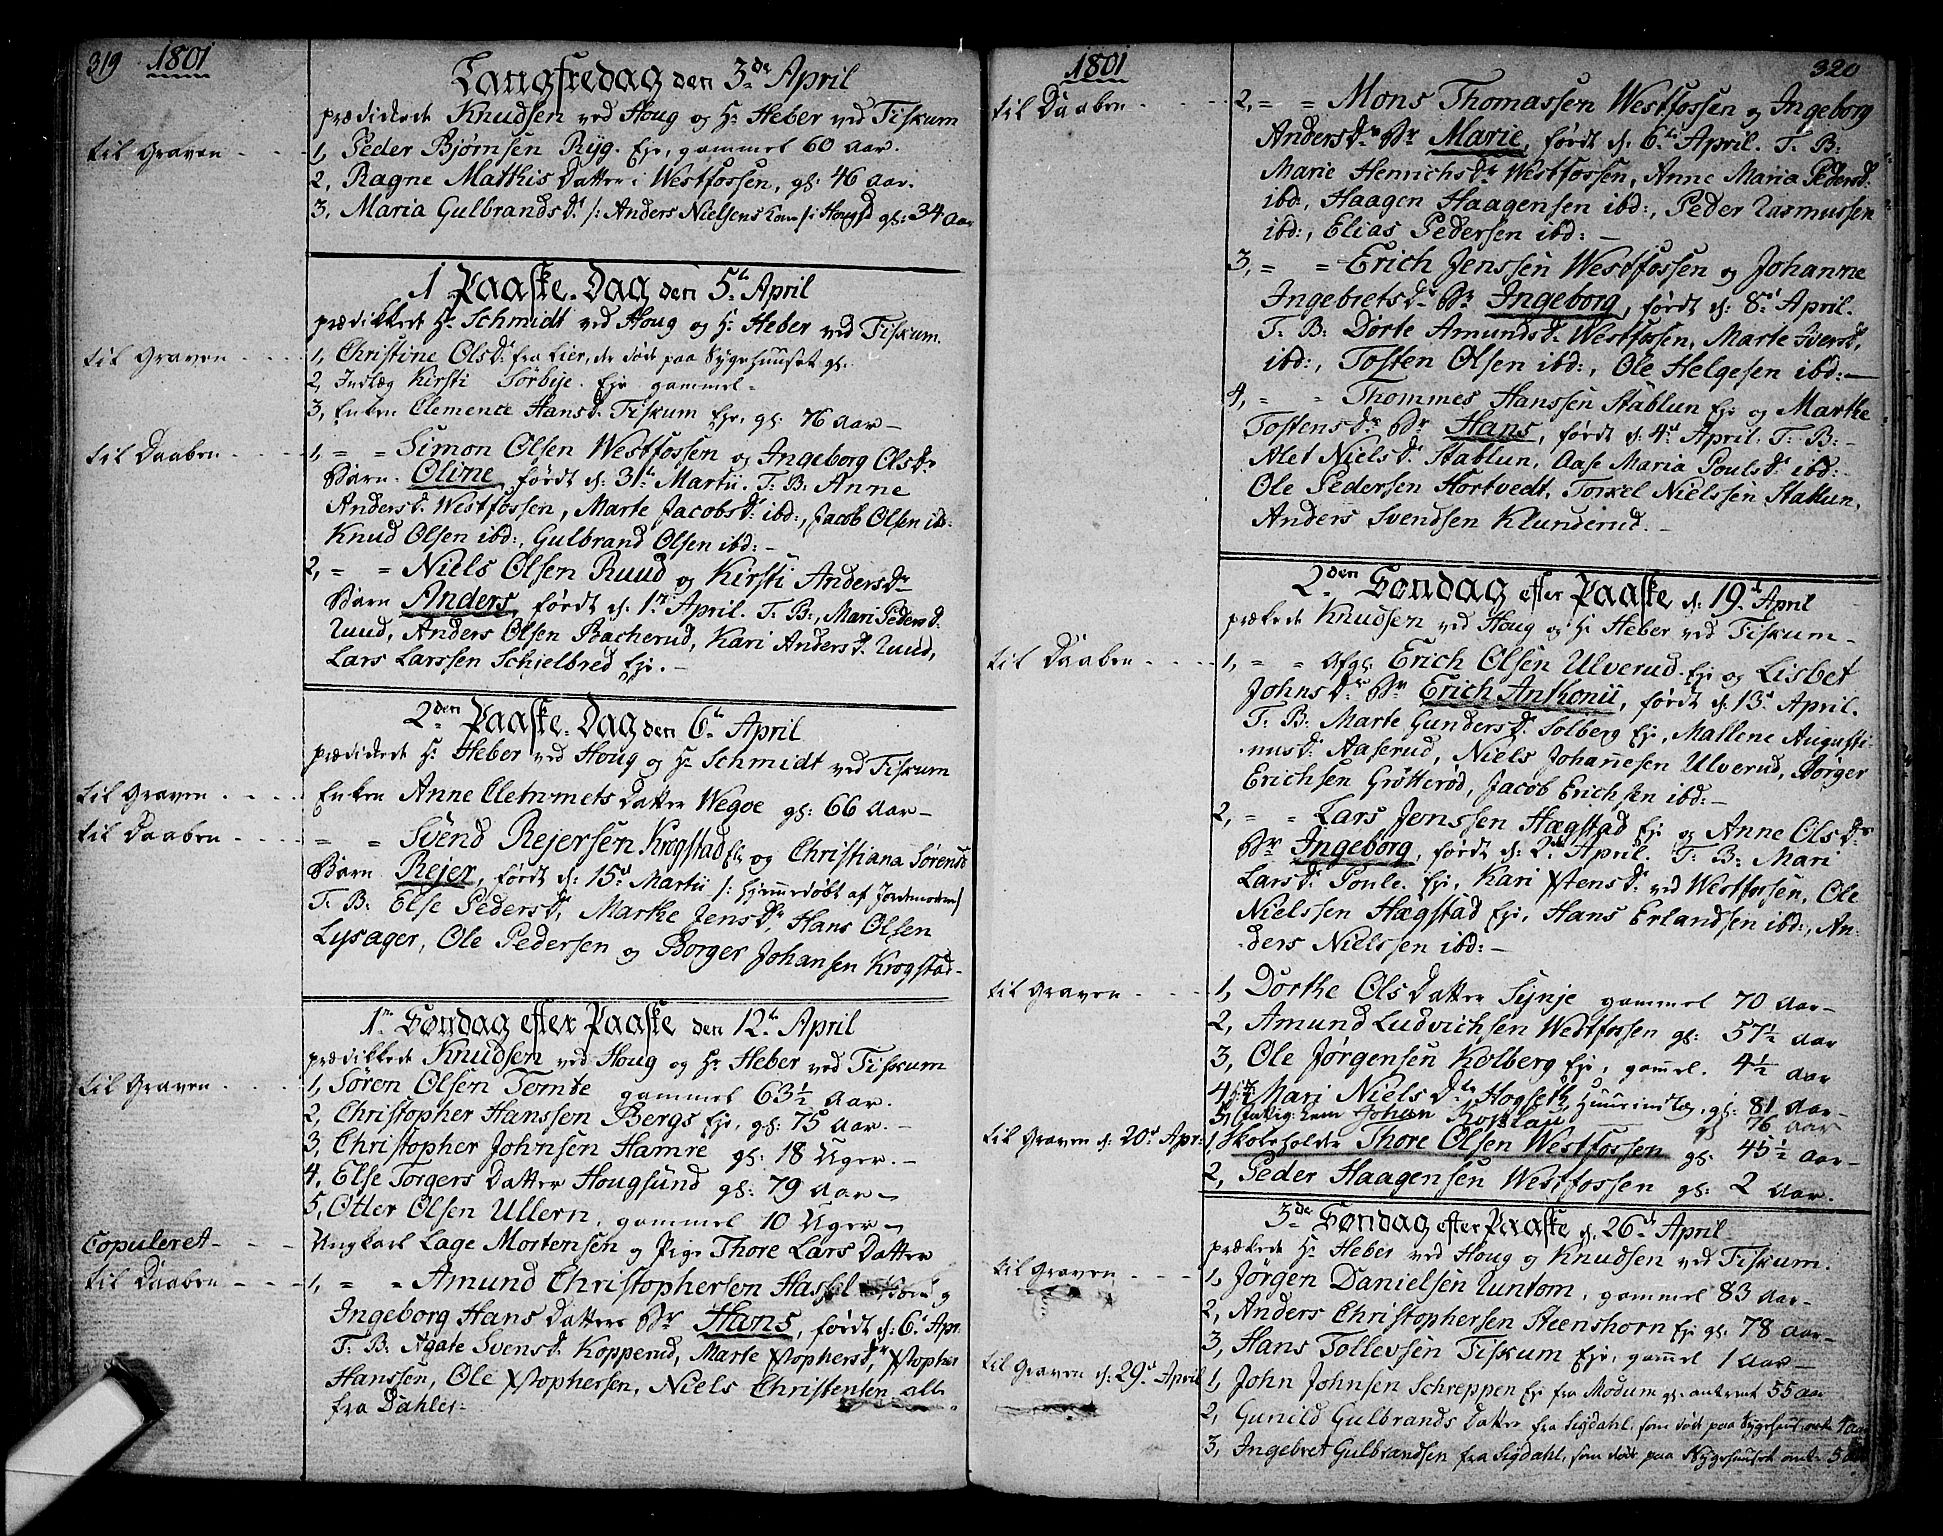 319 1801
Langfredag den 3de April
prædickede Knudsen ved Houg og Hr Heber ved Fiskum
til Graven 1, Peder Bjørnsen Ryg. Eje, gammel 60 aar.
2, Ragne Mathis Datter i Westfossen, gl: 46 aar.
3, Maria Gulbrandsdr /: Anders Nielsens Kone /: i Hougsd gl: 34 aar
1 Paaske-Dag den 5te April
prædikkede Hr Schmidt ved Houg og Hr Heber ved Fiskum.
til Graven 1, Christine Olsdr fra Lier, de døde paa Sygehuuset gl.
2, Indlæg Kirsti Sørbije. Eje gammel-
3, Enken Clemence Hansdr Fiskum Eje, gl: 76 aar-
til Daaben 1, = = Simon Olsen Westfossen og Ingeborg Olsdr
Barn. Oline, født d: 31te Martii. F: B: Anne
Andersdr Westfossen, Marte Jacobsdr ibd:, Jacob Olsen ibd:
Knud Olsen ibd:, Gulbrand Olsen ibd:-
2, = = Niels Olsen Ruud og Kirsti Andersdr
Barn Anders, født d: 1te April. F: B:, Mari Pedersd.
Ruud, Anders Olsen Bacherud, Kari Andersdr Ruud,
Lars Larssen Schjelbred Eje.-
2den Paaske-Dag den 6te April
prædickede Hr Heber ved Houg og Hr Schmidt ved Fiskum
til Graven Enken Anne Clemmets Datter Wegoe gl: 66 aar-
til Daaben = = Svend Rejersen Krogstad Eje og Christiana Sørensdr
Barn Rejer, født d: 15de Martii /: hjemmedøbt af Jordemoderen/
F: B: Else Pedersdr, Marthe Jensdr, Hans Olsen
Lysager, Ole Pedersen og Borger Johansen Krogstad-
1te Søndag efter Paaske den 12te April
prædikkede Knudsen ved Houg og Hr Heber ved Fiskum
til Graven 1, Søren Olsen Tomte gammel 63½ aar.
2, Christopher Hanssen Bergs Eje, gl: 75 aar.-
3, Christopher Johnsen Hamre gl: 18 Uger.-
4, Else Torgers Datter Hougsund gl: 79 aar-
5, Otter Olsen Ullern, gammel 10 Uger-
Copuleret- Ungkarl Lage Mortensen og Pige Thore Lars Datter
til Daaben 1, = = Amund Christophersen Hassel og
Ingeborg Hans Datters Br Hans, født d: 6te Apr.
F: B: Agate Svensdr Kopperud, Marte Xstophersdr, Xstopher
Hanssen, Ole Xstophersen, Niels Christensen alle
fra Dahler-
1801 320
til Daaben 2, = = Mons Thomassen Westfossen og Ingeborg
Andersdr Br Marie, født d: 6te April. F: B:
Marie Henrichsdr Westfossen, Anne Maria Pedersd:
ibd:, Haagen Haagensen ibd:, Peder Rasmussen
ibd:, Elias Pedersen ibd:-
3, = = Erich Jenssen Westfossen og Johanne
Ingebretsdr Br Ingeborg, født d: 8de April.
F: B: Dorte Amundsdr Westfossen, Marte Iversd,
ibd:, Tosten Olsen ibd:, Ole Helgesen ibd:-
4, = = Thommes Hanssen Stablun Eje og Marthe
Tostensdr Br Hans, født d: 4de April. F: B:-
Alet Nielsdr Stablun, Aase Maria Poulsdr ibd:-
Ole Pedersen Hortvedt, Torkel Nielssen Stablun,
Anders Svendsen Klunderud.-
2den Søndag efter Paaske d: 19de April
prækede Knudsen ved Houg og Hr Heber ved Fiskum-
til Daaben 1, = = Afgl. Erich Olsen Ulverud Eje og Lisbet
Johnsdr Br Erich Anthonii, født d: 13de April.
F: B: Marte Gundersdr Solberg Eje, Mallene Augusti-
nusdr Aaserud, Niels Johannesen Ulverud, Børger
Erichsen Grøtterød, Jacob Erichsen ibd:-
2, = = Lars Jenssen Hægstad Eje og Anne Olsdr
Br Ingeborg, født d: 2de April. F: B: Mari
Larsdr Poule. Eje, Kari Xstensdr ved Westfossen, Ole
Nielssen Hægstad Eje, Hans Erlandsen ibd:, An-
ders Nielssen ibd:-
til Graven 1, Dorthe Ols Datter Synje gammel 70 aar-
2, Amund Ludvichsen Westfossen gl: 57½ aar
3, Ole Jørgensen Kolberg Eje, gammel. 4½ aar
4, Mari Nielsdr Hogseth, Huusindlæg, gl: 81 aar-
5, Johan gl 76 aar
til Graven d: 20de Apr: 1, Skoleholder Thore Olsen Westfossen gl: 45½ aar-
2, Peder Haagensen Westfossen gl: 2 aar.
3de Søndag efter Paaske d. 26de April
prækede Hr Heber ved Houg og Knudsen ved Fiskum.
til Graven 1, Jørgen Danielsen Runtom, gammel 83 aar-
2, Anders Christophersen Steenshorn Eje gl: 78 aar-
3, Hans Tollevsen Fiskum Eje, gammel 1 aar-
til Graven d: 29de April 1, John Johnsen Schreppen Eje fra Modum gl: omtrent 55 aar
2, Gunild Gulbrands Datter fra Sigdahl, som døde paa Sygehuus, omtr 4 aar
3, Ingebret Gulbrandsen fra Sigdahl, som døde paa Sygehuuset omtr 5 aar